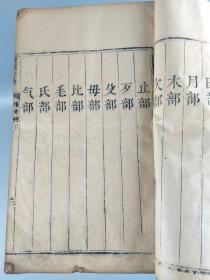 曰部
月部
木部
欠部
止部
歹部
殳部
毋部
比部
毛部
氏部
气部